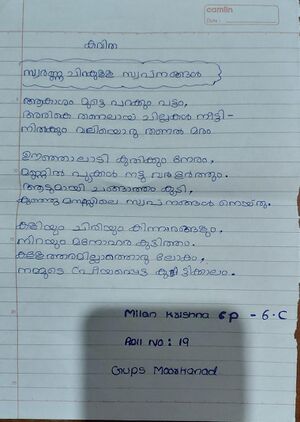 camlin
Date :
കവിത
സ്വർണ്ണ ചിറകുള്ള സ്വപ്നങ്ങൾ
ആകാശം മുട്ടെ പറക്കും പട്ടം,
അരികെ തണലായ് ചില്ലകൾ നീട്ടി-
നിൽക്കും വലിയൊരു തണൽ മരം.
ഊഞ്ഞാലാടി കുതിക്കും നേരം,
മണ്ണിൽ പൂക്കൾ നട്ടു വളർത്തും.
ആടുമായി ചങ്ങാത്തം കൂടി,
കുഞ്ഞു മനസ്സിലെ സ്വപ്നങ്ങൾ നെയ്തു.
കളിയും ചിരിയും കിന്നാരങ്ങളും,
നിറയും മനോഹര കുട്ടിത്തം.
കള്ളത്തരമില്ലാത്തൊരു ലോകം,
നമ്മുടെ പ്രിയപ്പെട്ട കുട്ടിക്കാലം.
Milan Krishna GP - 6.C
Roll No : 19
Gups Moorkanad